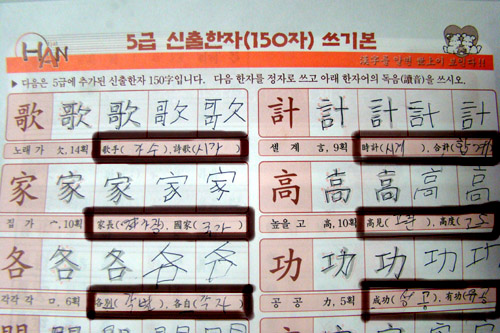 HAN
5급 신출한자(150자) 쓰기본
▶ 다음은 5급에 추가된 신출한자 150字입니다. 다음 한자를 정자로 쓰고 아래 한자어의 독음(讀音)을 쓰시오.
歌 歌 歌 歌 歌 計 計 計 計 計
노래 가 欠, 14획 歌手(가수), 詩歌(시가) 셀 계 言, 9획 時計(시계), 合計(합계
家 家 家 家 家 高 高 高 高 高
집 가 宀, 10획 家長(가장), 國家(국가) 높을 고 高, 10획 高見(고견), 高度(고도
各 各 各 各 各 功 功 功 功 功
각각 각 口, 6획 各別(각별), 各自(각자) 공 공 力, 5획 成功(성공), 有功(유공